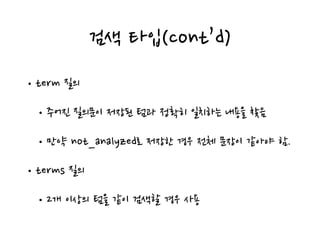 검색 타입(cont'd)
• term 질의
• 주어진 질의문이 저장된 텀과 정확히 일치하는 내용을 찾음
• 만약 not_analyzed로 저장한 경우 전체 문장이 같아야 함.
• terms 질의
• 2개 이상의 텀을 같이 검색할 경우 사용